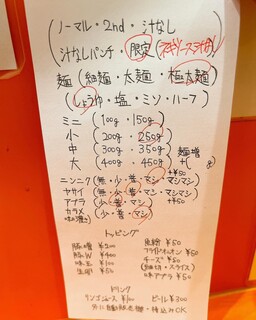 (ノーマル・2nd・汁なし
汁なしパンチ・限定(
麺(細麺・太麺・極太麺)
(しょうゆ・塩・ミソ・ハーフ)
ミニ(100g・150g)
小(200g・250g)
中(300g・350g)麺増
大(400g・450g)+(
+¥50
ニンニク(無・少・普・マシ・マシマシ)
ヤサイ(無・少・普・マシ・マシマシ)
アブラ(少・普・マシ)+¥50
カラメ(少・普・マシ)
トッピング
豚増 ¥200 生姜 ¥50
豚W ¥400 フライドオニオン ¥50
味玉 ¥100 チーズ ¥50
生卵 ¥50 (細切・スライス)
味アブラ ¥50
ドリンク
リンゴジュース ¥100 ビール ¥300
外に自販機・持込みOK